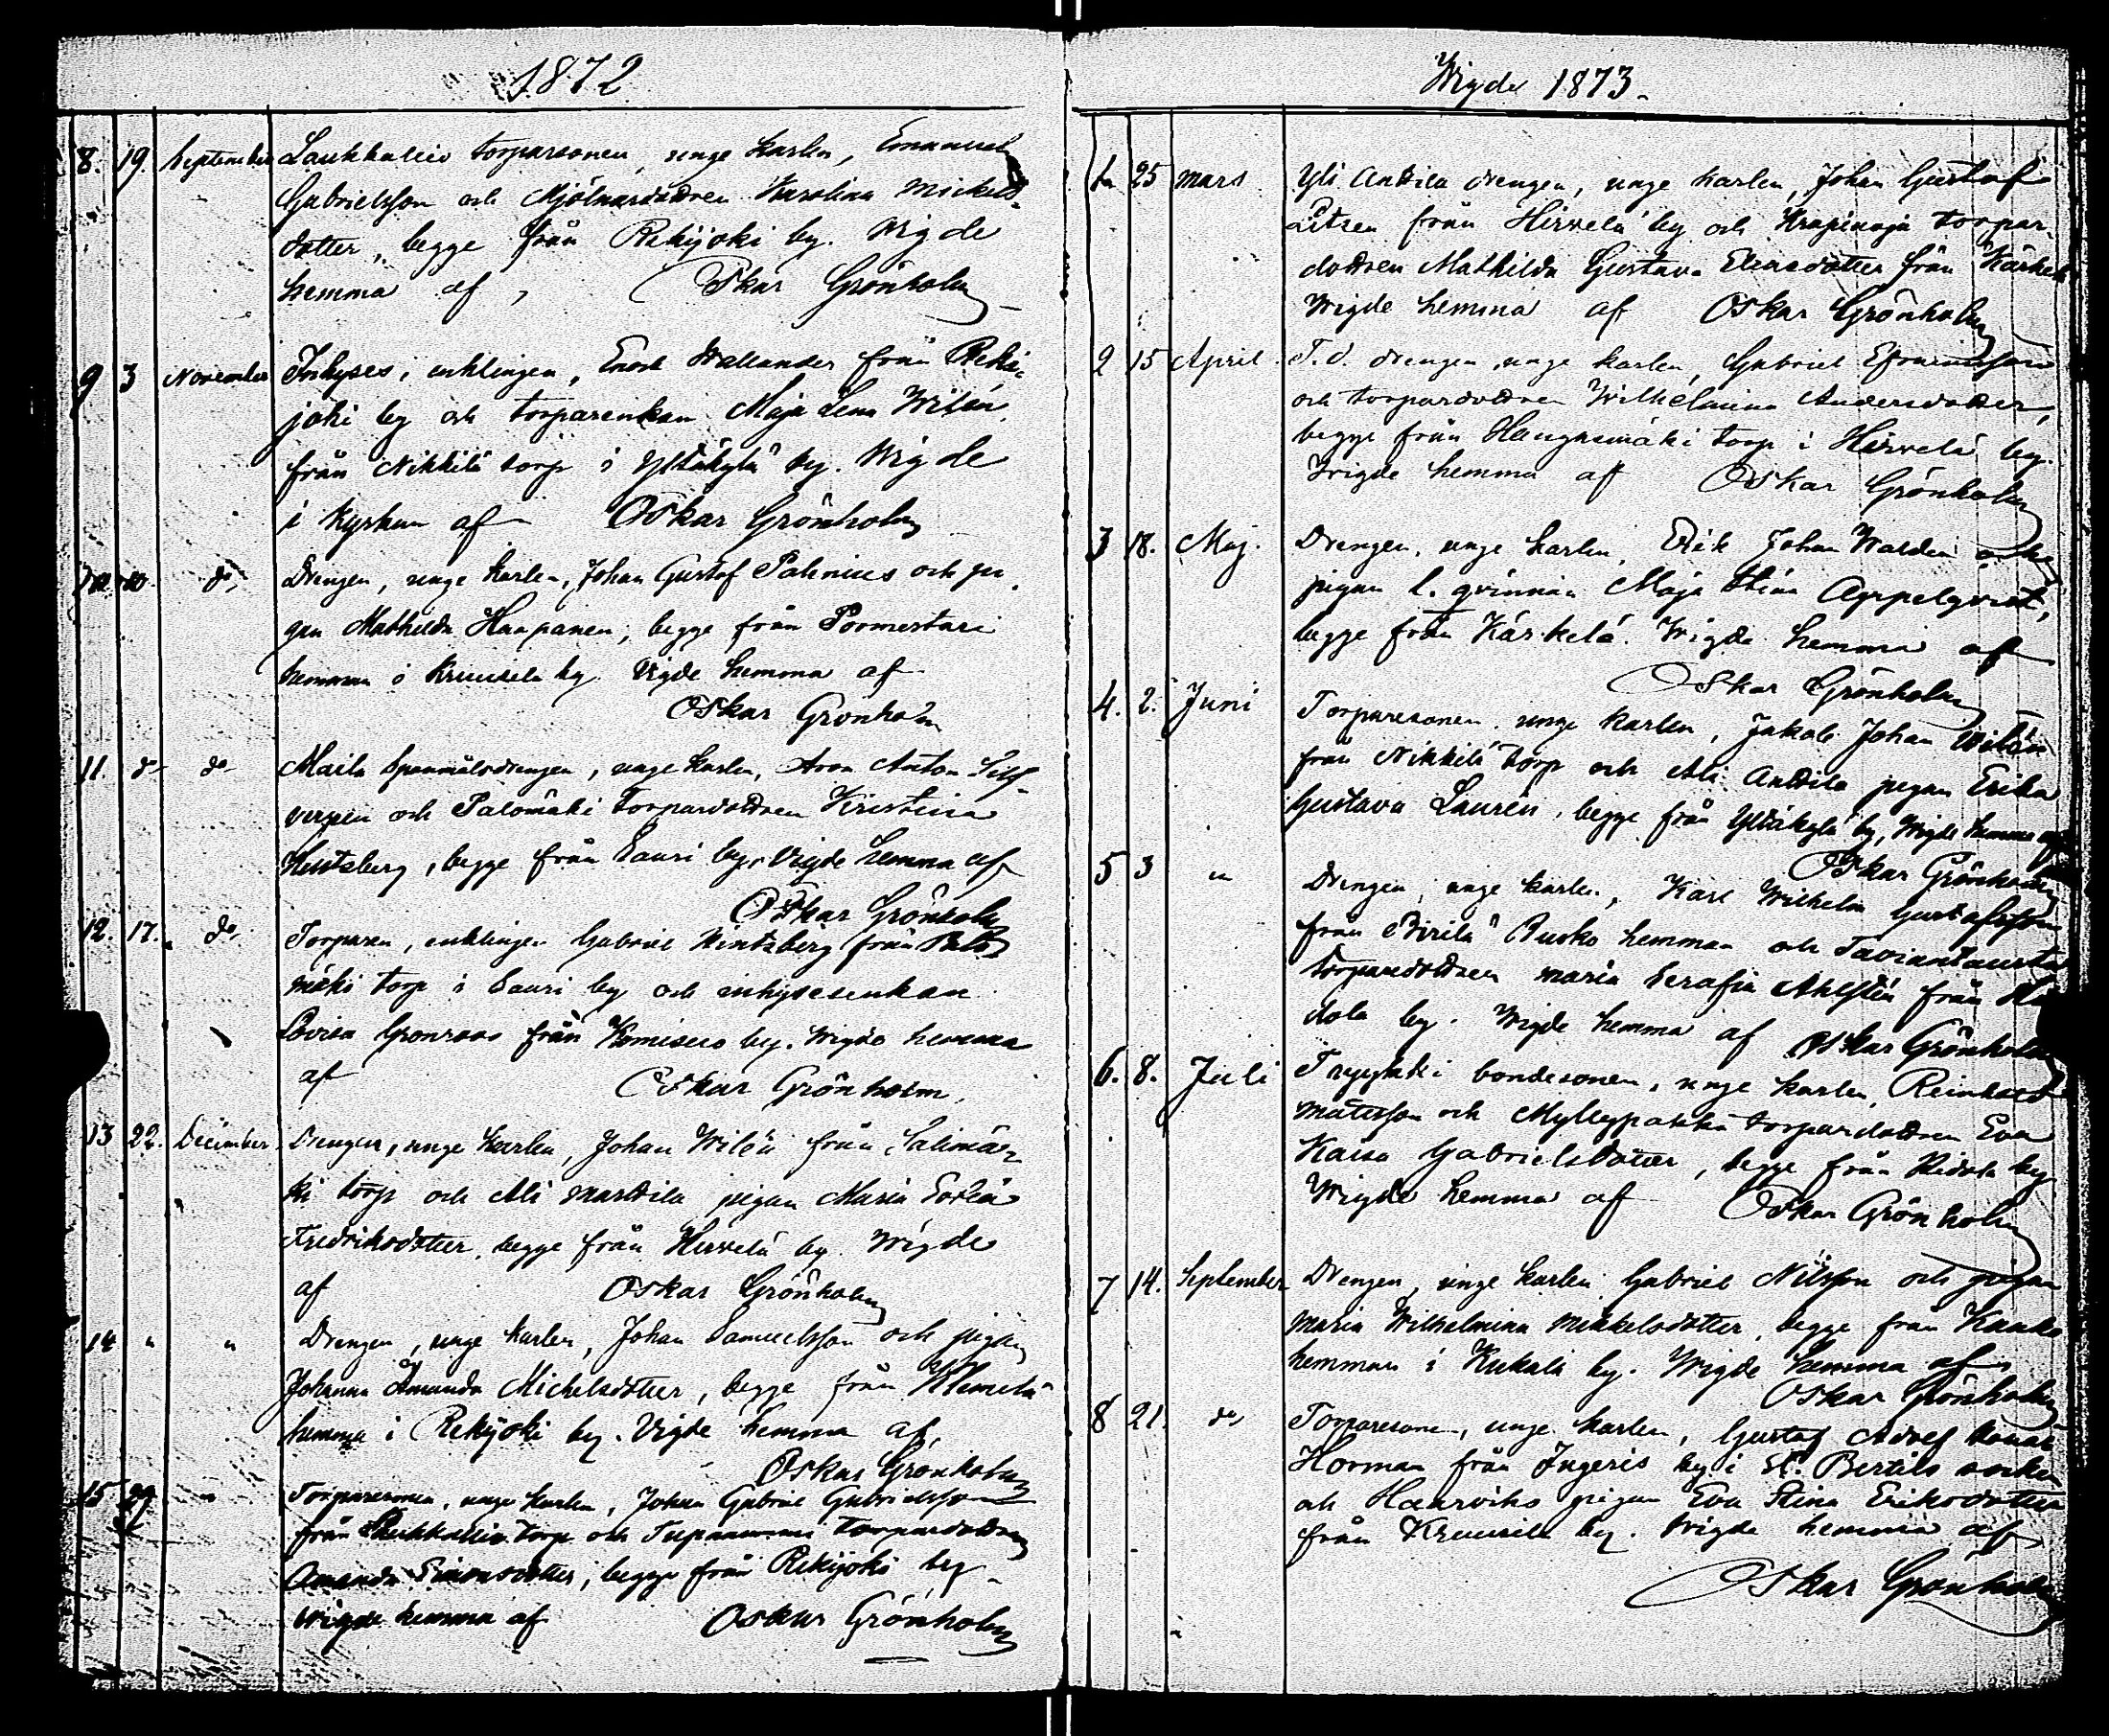 1872
8. 19. September Laukkallio torparsonen, unge karlen, Emanuel
Gabrielsson och Mjölnardottren Karolina Mickels-
dotter, begge från Rekijoki by. Wigde
hemma af, Oskar Grönholm
9 3 November Inhyses, enklingen, Enok Wallander från Reki-
joki by och torparenkan Maja Lena Wilén
från Nikkilä torp i Yltäkylä by. Wigde
i kyrkan af Oskar Grönholm
10 do Drengen, unge karlen, Johan Gustaf Palenius och pi-
gan Mathilda Haapanen, begge från Pormestari
hemman i Kruusila by. Vigde hemma af
Oskar Grönholm
11. do do Maila Spanmålsdrengen, unge karlen, Aron Anton Silf-
verpen och Palomäki torpardottren Kristina
Hintsberg, begge från Sauri by, Vigde hemma af
Oskar Grönholm
12. 17. do Torparen, enklingen Gabriel Hintsberg från Palo
mäki torp i Sauri by och inhysesenkan
Lovisa Grönroos från by. Wigde hemma
af Oskar Grönholm.
13 22. December Drengen, unge karlen, Johan Wilén från Salimä-
ki torp och Ali Marttila pigan Maria Sofia
Fredriksdotter, begge från Hirvelä by. Wigde
af Oskar Grönholm
14 " " Drengen, unge karlen, Johan Samuelsson och pigan
Johanna Amanda Michelsdotter, begge från Klemelä
hemma i Rekijoki by. Vigde hemma af,
Oskar Grönholm
15 " Torparesonen, unge karlen, Johan Gabriel Gabrielsson
från Laukkallio torp och torpardottren
Amanda Simonsdotter, begge från Rekijoki by
Wigde hemma af Oskar Grönholm
Wigde 1873.
1 25 mars Yli Anttila drengen, unge karlen, Johan Gustaf
från Hirvelä by och Krapinoja torpar-
dottren Mathilda Gustava Eliasdotter från Kärkelä
Wigde hemma af Oskar Grönholm
2 15 April. T.d. drengen, unge karlen, Gabriel Efraimsson
och torpardottren Wilhelmina Andersdotter,
begge från Haugasmäki torp i Hirvelä by.
Wigde hemma af Oskar Grönholm
3 18. Maj. Drengen, unge karlen, Erik Johan Walden och
pigan l. qvinnan Maja Stina Appelqvist,
begge från Kärkelä. Wigde hemma af
Oskar Grönholm
4. 2. Juni Torparesonen, unge karlen, Jakob Johan Wilén
från Nikkilä torp och Ali Anttila pigan Erika
Gustava Laurén, begge från Yltäkylä by, Wigde hemma af
Oskar Grönholm
5 3 " Drengen, unge karlen, Karl Wilhelm Gustafsson
från Pirilä Rusko hemman och
torparedottren Maria Serafia Ahlstén från
by. Wigde hemma af Oskar Grönholm
6. 8. Juli bondesonen, unge karlen, Reinhold
Matsson och Myllypakka torpardottren Eva
Kaisa Gabrielsdotter, begge från by
Wigde hemma af Oskar Grönholm
7 14. September Drengen, unge karlen, Gabriel Nilsson och pigan
Maria Wilhelmina Mikkelsdotter, begge från
hemman i Kukala by. Wigde hemma af
Oskar Grönholm
8 21. do Torparesonen, unge karlen, Gustaf Adolf
Horman från Ingeris by i St. Bertils socken
och pigan Eva Stina Eriksdotter
från Kruusila by. Wigde hemma af
Oskar Grönholm